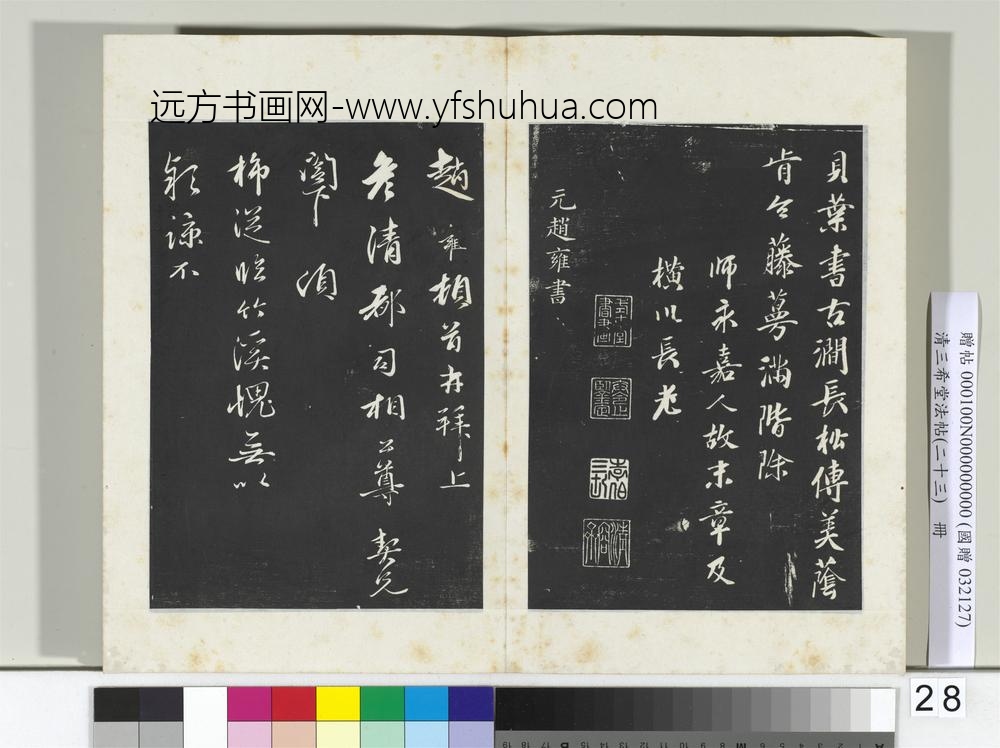 远方书画网-www.yfshuhua.com
貝葉書古澗長松傳美蔭
肯令藤蔓滿階除
師永嘉人故末章及
橫川長老
元趙雍書
趙雍頓首再拜上
彦清郡司相公尊契兄
閣下須
柿送臨竹溪愧無以
報諒不
贈帖 000100N000000000 (國贈 032127)
清三希堂法帖(二十三) 冊
28